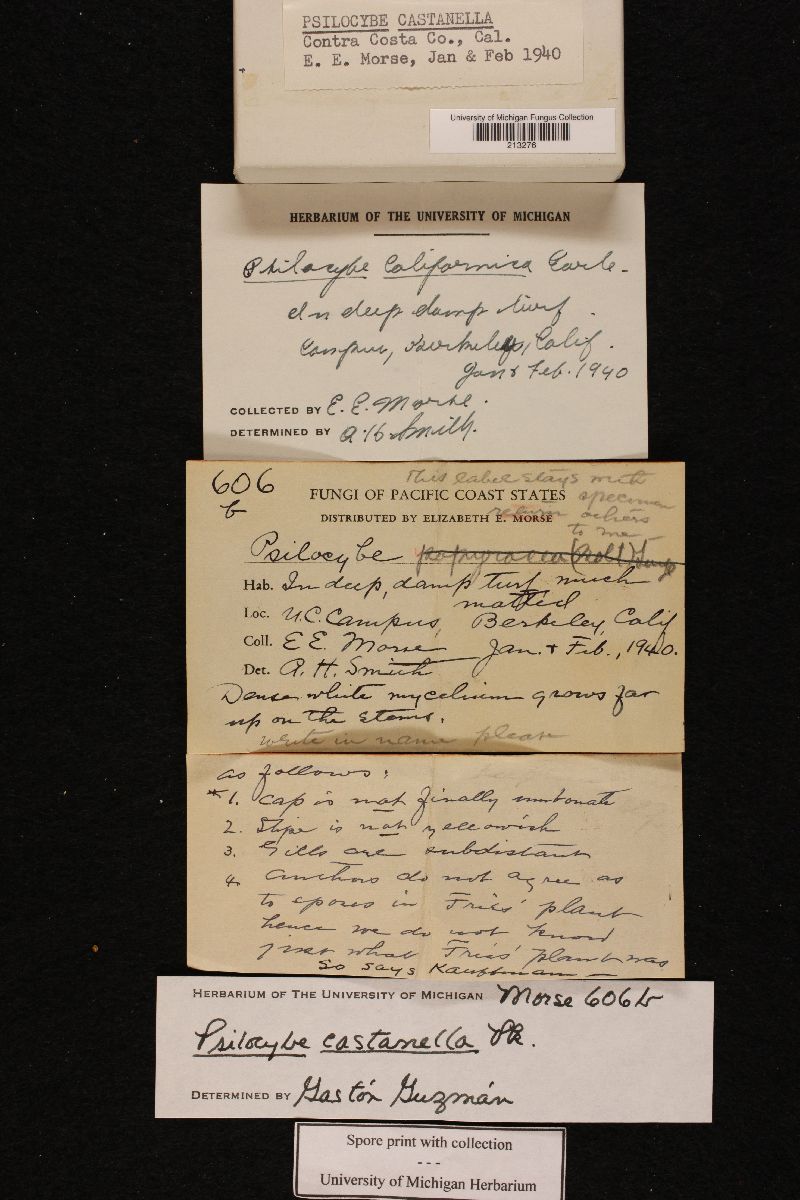 PSILOCYBE CASTANELLA
Contra Costa Co., Cal.
E. E. Morse, Jan & Feb 1940
University of Michigan Fungus Collection
213276
HERBARIUM OF THE UNIVERSITY OF MICHIGAN
Psilocybe Californica Earle.
In deep damp turf.
Campus, Berkeley, Calif.
Jan & Feb. 1940
COLLECTED BY E. E. Morse.
DETERMINED BY A. H. Smith.
606
b
This label stays with
specimen
return others
to me
FUNGI OF PACIFIC COAST STATES
DISTRIBUTED BY ELIZABETH E. MORSE
Psilocybe
Hab. In deep, damp turf much
matted
Loc. U.C. Campus, Berkeley, Calif
Coll. E E. Morse Jan. & Feb., 1940.
Det. A. H. Smith
Dense white mycelium grows far
up on the stems.
write in name please
as follows:
* 1. Cap is not finally umbonate
2. Stipe is not yellowish
3. Gills are subdistant
4. Authors do not agree as
to spores in Fries' plant
hence we do not know
just what Fries' plant was
So says Kauffman
HERBARIUM OF THE UNIVERSITY OF MICHIGAN Morse 606b
Psilocybe castanella Pk.
DETERMINED BY Gastón Guzmán
Spore print with collection
- - -
University of Michigan Herbarium